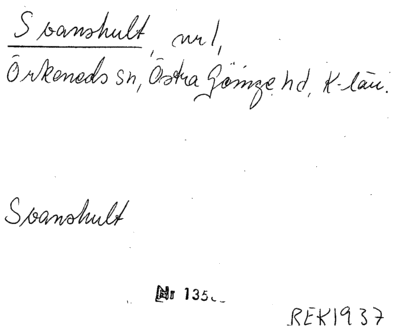 Svanshult, nr 1,
Örkeneds sn, Östra Göinge hd, K-län.
Svanshult
Nr 135
REK1937